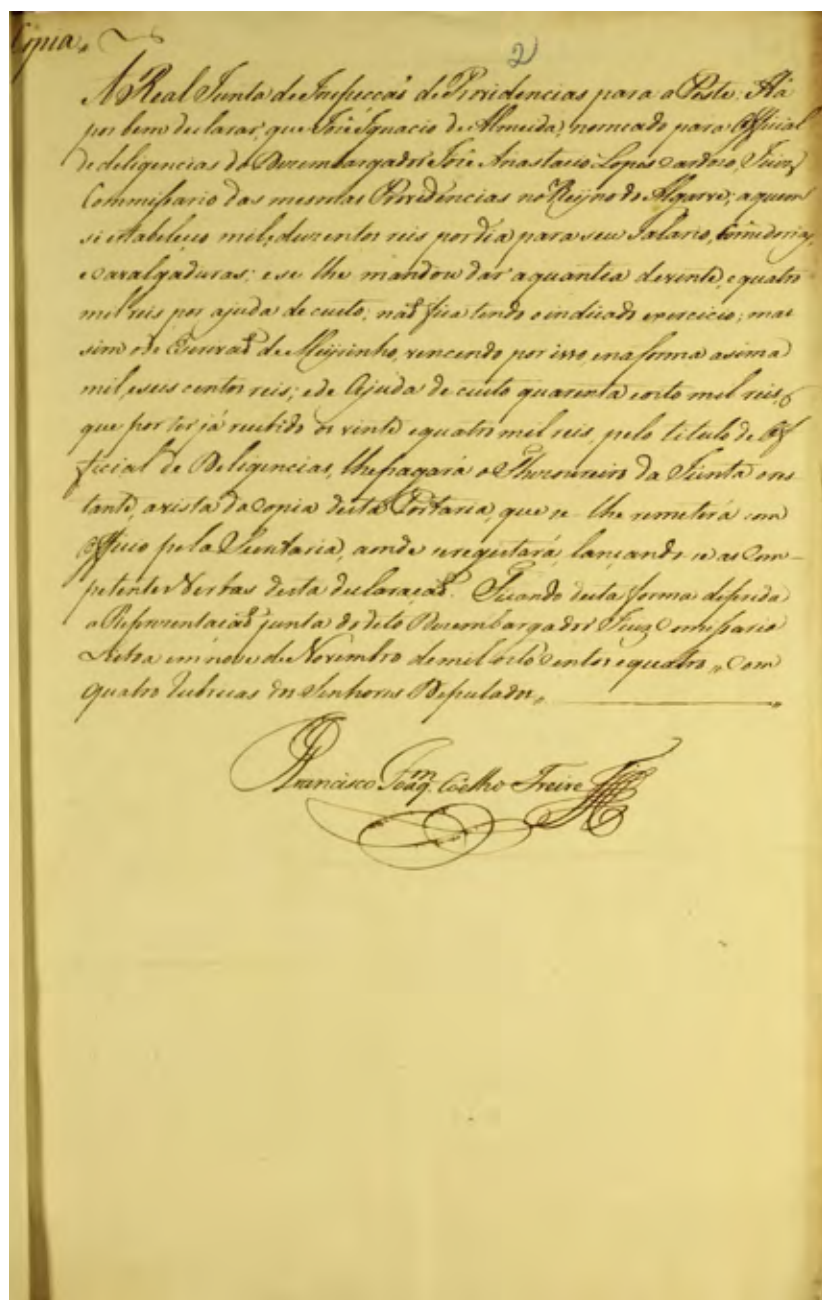 Copia,,
2
A Real Junta de Inspecçaõ de Providencias para a Peste: Há
por bem declarar, que Joze Ignacio de Almeida, nomeado para Official
de deligencias do Dezembargador Joze Anastacio Lopes Cardozo, Juiz
Commissario das mesmas Providencias no Reyno do Algarve; aquem
se estabeleceo mil, duzentos reis por dia para seu Salario, Comedorias,
e cavalgaduras; e se lhe mandou dar a quantia de vinte, e quatro
mil reis por ajuda de custo; naõ fica tendo o indicado exercicio; mas
sim o de Escrivaõ de Meyrinho, vencendo por isso, e na forma asima
mil, e seis centos reis; e de Ajuda de custo quarenta e oito mil reis, e
que por ter já recebido os vinte e quatro mil reis, pelo titulo de Of
ficial de Deligencias, lhe pagará o Thezoureiro da Junta o res
tante, a vista da Copia desta Portaria, que se lhe remeterá com
Officio pela Secretaria, aonde se registará, lançando se as Com-
petentes Verbas desta declaraçaõ. Ficando desta forma deferida
a Reprezentaçaõ junta do dito Dezembargador Juiz Comissario
Lisboa em nove de Novembro de mil oito centos e quatro,, Com
quatro Rubricas dos Senhores Deputados,,
Francisco Joaq.m Coelho Freire